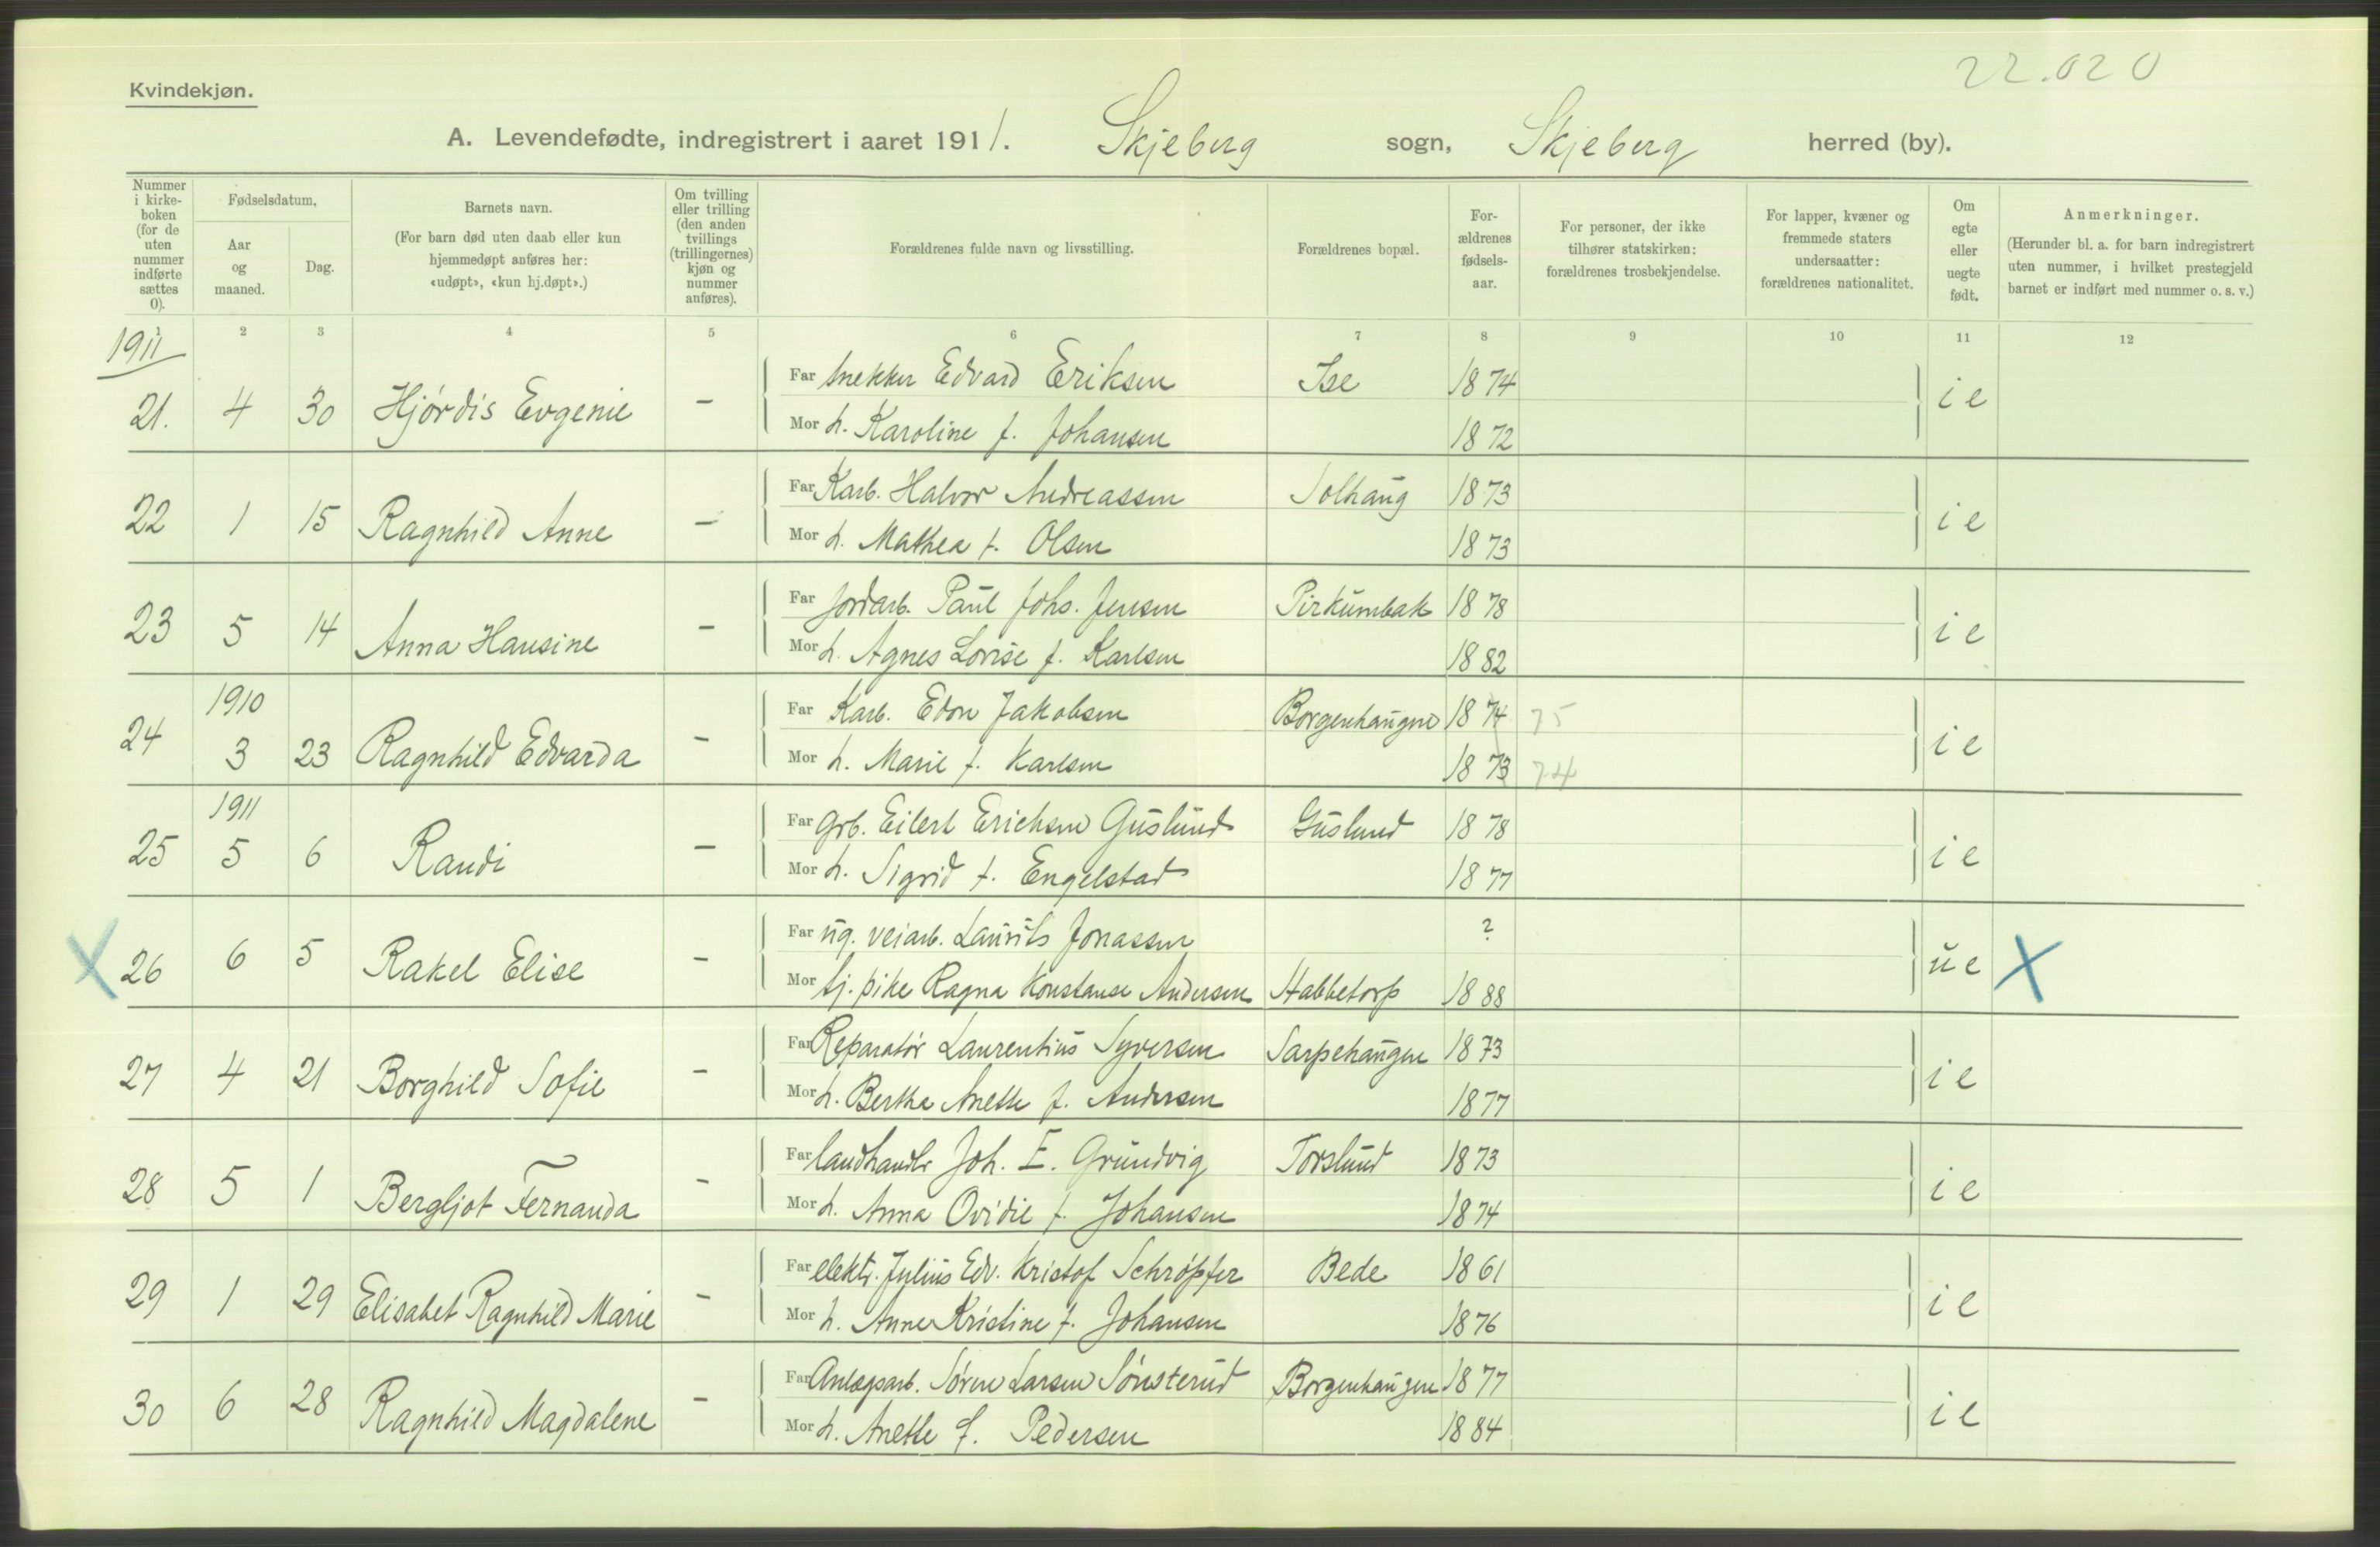 22.020
Kvindekjøn.
A. Levendefødte, indregistrert i aaret 1911. Skjeberg sogn, Skjeberg herred (by).
Nummer i kirke-boken (for de uten nummer indførte sættes 0).
Fødselsdatum,
Aar og maaned.
Dag.
Barnets navn.
(For barn død uten daab eller kun hjemmedøpt anføres her: «udøpt», «kun hj.døpt».)
Om tvilling eller trilling (den anden tvillings (trillingernes) kjøn og nummer anføres).
Forældrenes fulde navn og livsstilling.
Forældrenes bopæl.
For-ældrenes fødsels-aar.
For personer, der ikke tilhører statskirken: forældrenes trosbekjendelse.
For lapper, kvæner og fremmede staters undersaatter: forældrenes nationalitet.
Om egte eller uegte født.
Anmerkninger.
(Herunder bl. a. for barn indregistrert uten nummer, i hvilket prestegjeld barnet er indført med nummer o. s. v.)
1 2 3 4 5 6 7 8 9 10 11 12
1911
Far snekker Edvard Eriksen Ise 1874
21. 4 30 Hjørdis Evgenie - ie
Mor h. Karoline f. Johansen 1872
Far Karb. Halvor Andreassen Solhaug 1873
22 1 15 Ragnhild Anne - ie
Mor h. Mathea f. Olsen 1873
Far Jordarb. Paul Johs. Jensen Pirkumbak 1878
23 5 14 Anna Hansine - ie
Mor h. Agnes Lovise f. Karlsen 1882
1910
Far Karb. Edon Jakobsen Borgenhaugen 1874 75
24 3 23 Ragnhild Edvarda - ie
Mor h. Marie f. Karlsen 1873 74
1911
Far Grb. Eilert Erichsen Guslund Guslund 1878
25 5 6 Randi - ie
Mor h. Sigrid f. Engelstad 1877
Far ug. veiarb. Laurits Jonassen ?
X 26 6 5 Rakel Elise - ue X
Mor tj. pike Ragna Konstanse Andersen Habbetorp 1888
Far Reparatør Laurentius Syversen Sarpehaugen 1873
27 4 21 Borghild Sofie - ie
Mor h. Berthe Anette f. Andersen 1877
Far landhandlr Joh. E. Grundvig Torslund 1873
28 5 1 Bergljot Fernanda - ie
Mor h. Anna Ovidie f. Johansen 1874
Far elektr. Julius Edv. Kristof Schröpfer Bede 1861
29 1 29 Elisabet Ragnhild Marie - ie
Mor h. Anne Kristine f. Johansen 1876
Far Anlægsarb. Søren Larsen Sønsterud Borgenhaugen 1877
30 6 28 Ragnhild Magdalene - ie
Mor h. Anette f. Pedersen 1884